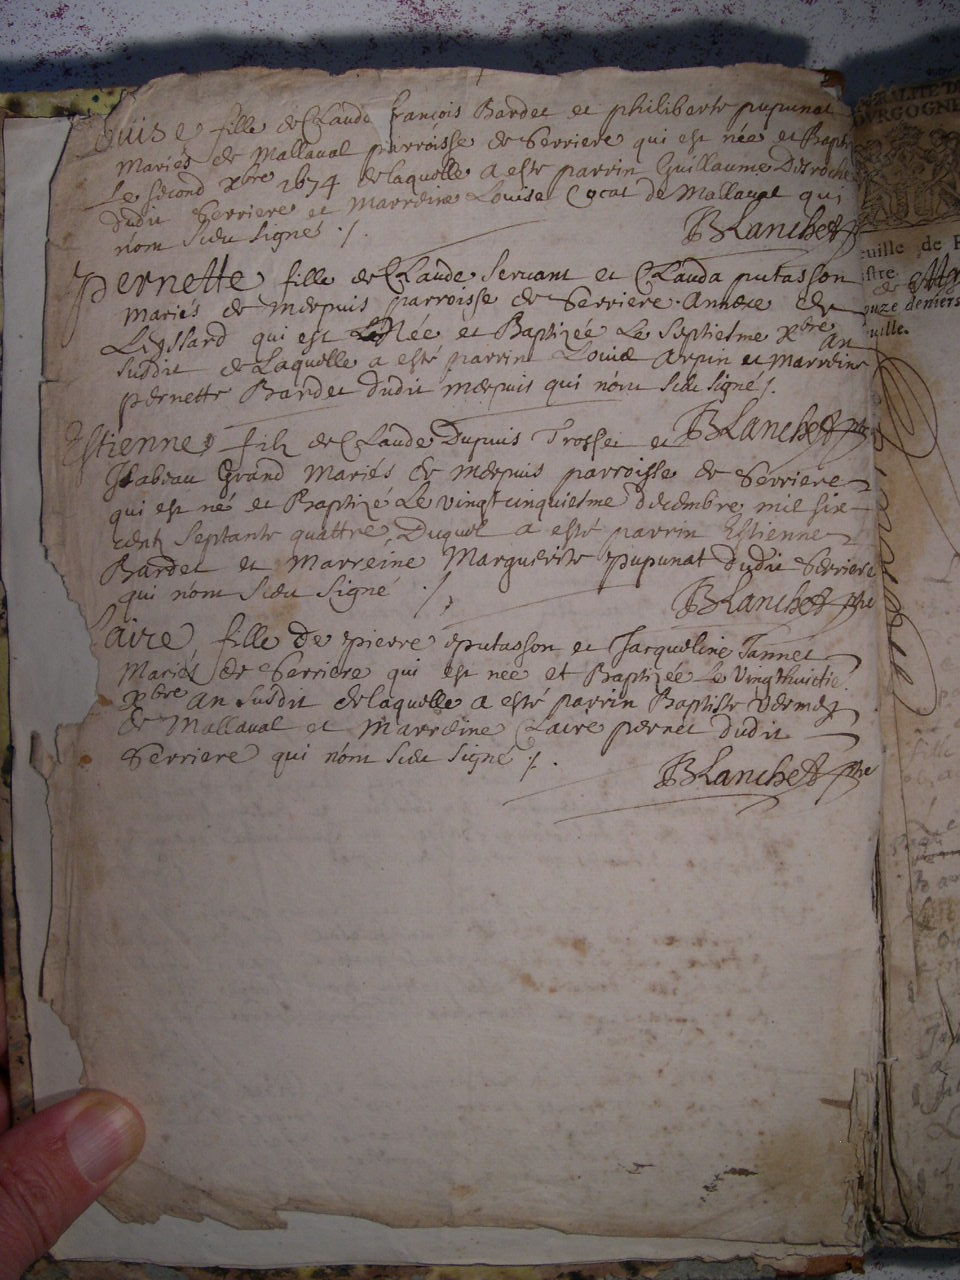 Louise fille de Claude francois Bardet et philiberte pupunat
Mariés de Mallaval parroisse de Serriere qui est née et Bapt
Le second Xbre 1674 de laquelle a este parrin Guillaume Desroche
dudit Serriere et Marreine Louise Cocat de Mallaval qui
n'ont sceu signés ./.
BLanchet
Pernette fille de Claude Servant et Clauda putasson
Mariés de Merpuis parroisse de Serriere Annexe de
Leyssard qui est Née et Baptizée Le Septiesme Xbre an
susdit de Laquelle a esté parrin Louis Arpin et Marreine
pernette Bardet dudit Merpuis qui n'ont sceu signé /.
BLanchet pbre
Estienne fils de Claude Dupuis Trosset et
Isabeau Grand Mariés de Merpuis parroisse de Serriere
qui est né et Baptizé Le vingtcinquiesme decembre mil six
cents septante quattre, Duquel a esté parrin Estienne
Bardet et Marreine Marguerite pupunat dudit Serriere
qui n'ont sceu signé ./.
BLanchet pbre
Claire fille de pierre putasson et Jacqueline Tannet
Mariés de Serriere qui est née et Baptizée Le Vingthuictie
Xbre An susdit de laquelle a esté parrin Baptiste
de Mallaval et Marreine Claire pernet dudit
Serriere qui n'ont sceu signé ./.
BLanchet pbre
RALITE DE
OVRGOGNE
euille de
stre
ouze deniers
uille.